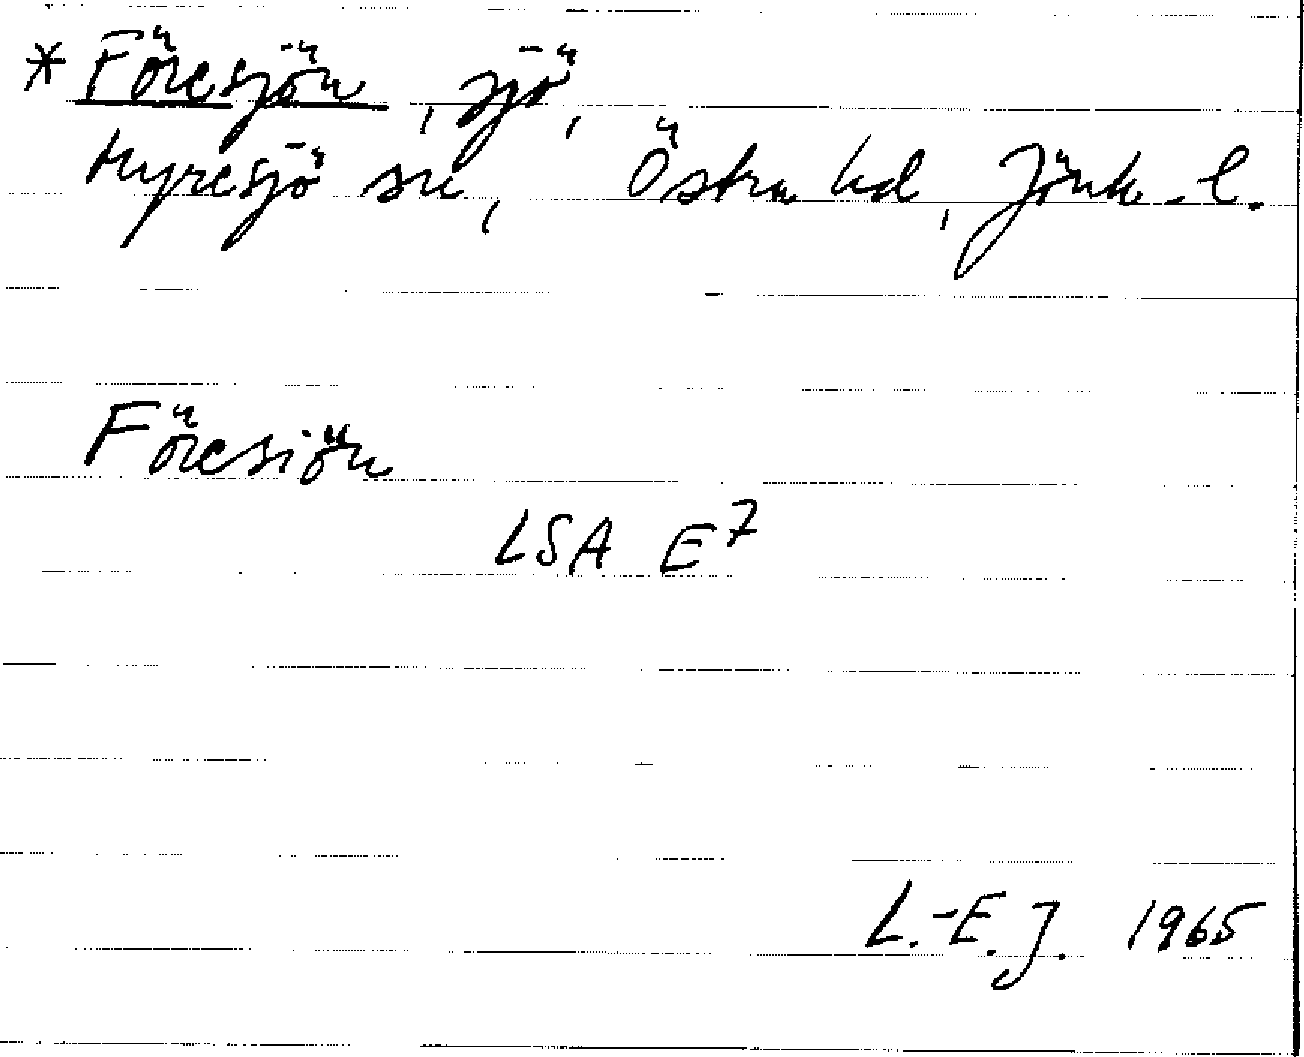 * Föresjön, sjö,
Myresjö sn, Östra hd, Jönk. l.
Föresiön
LSA E7
L.-E. J. 1965